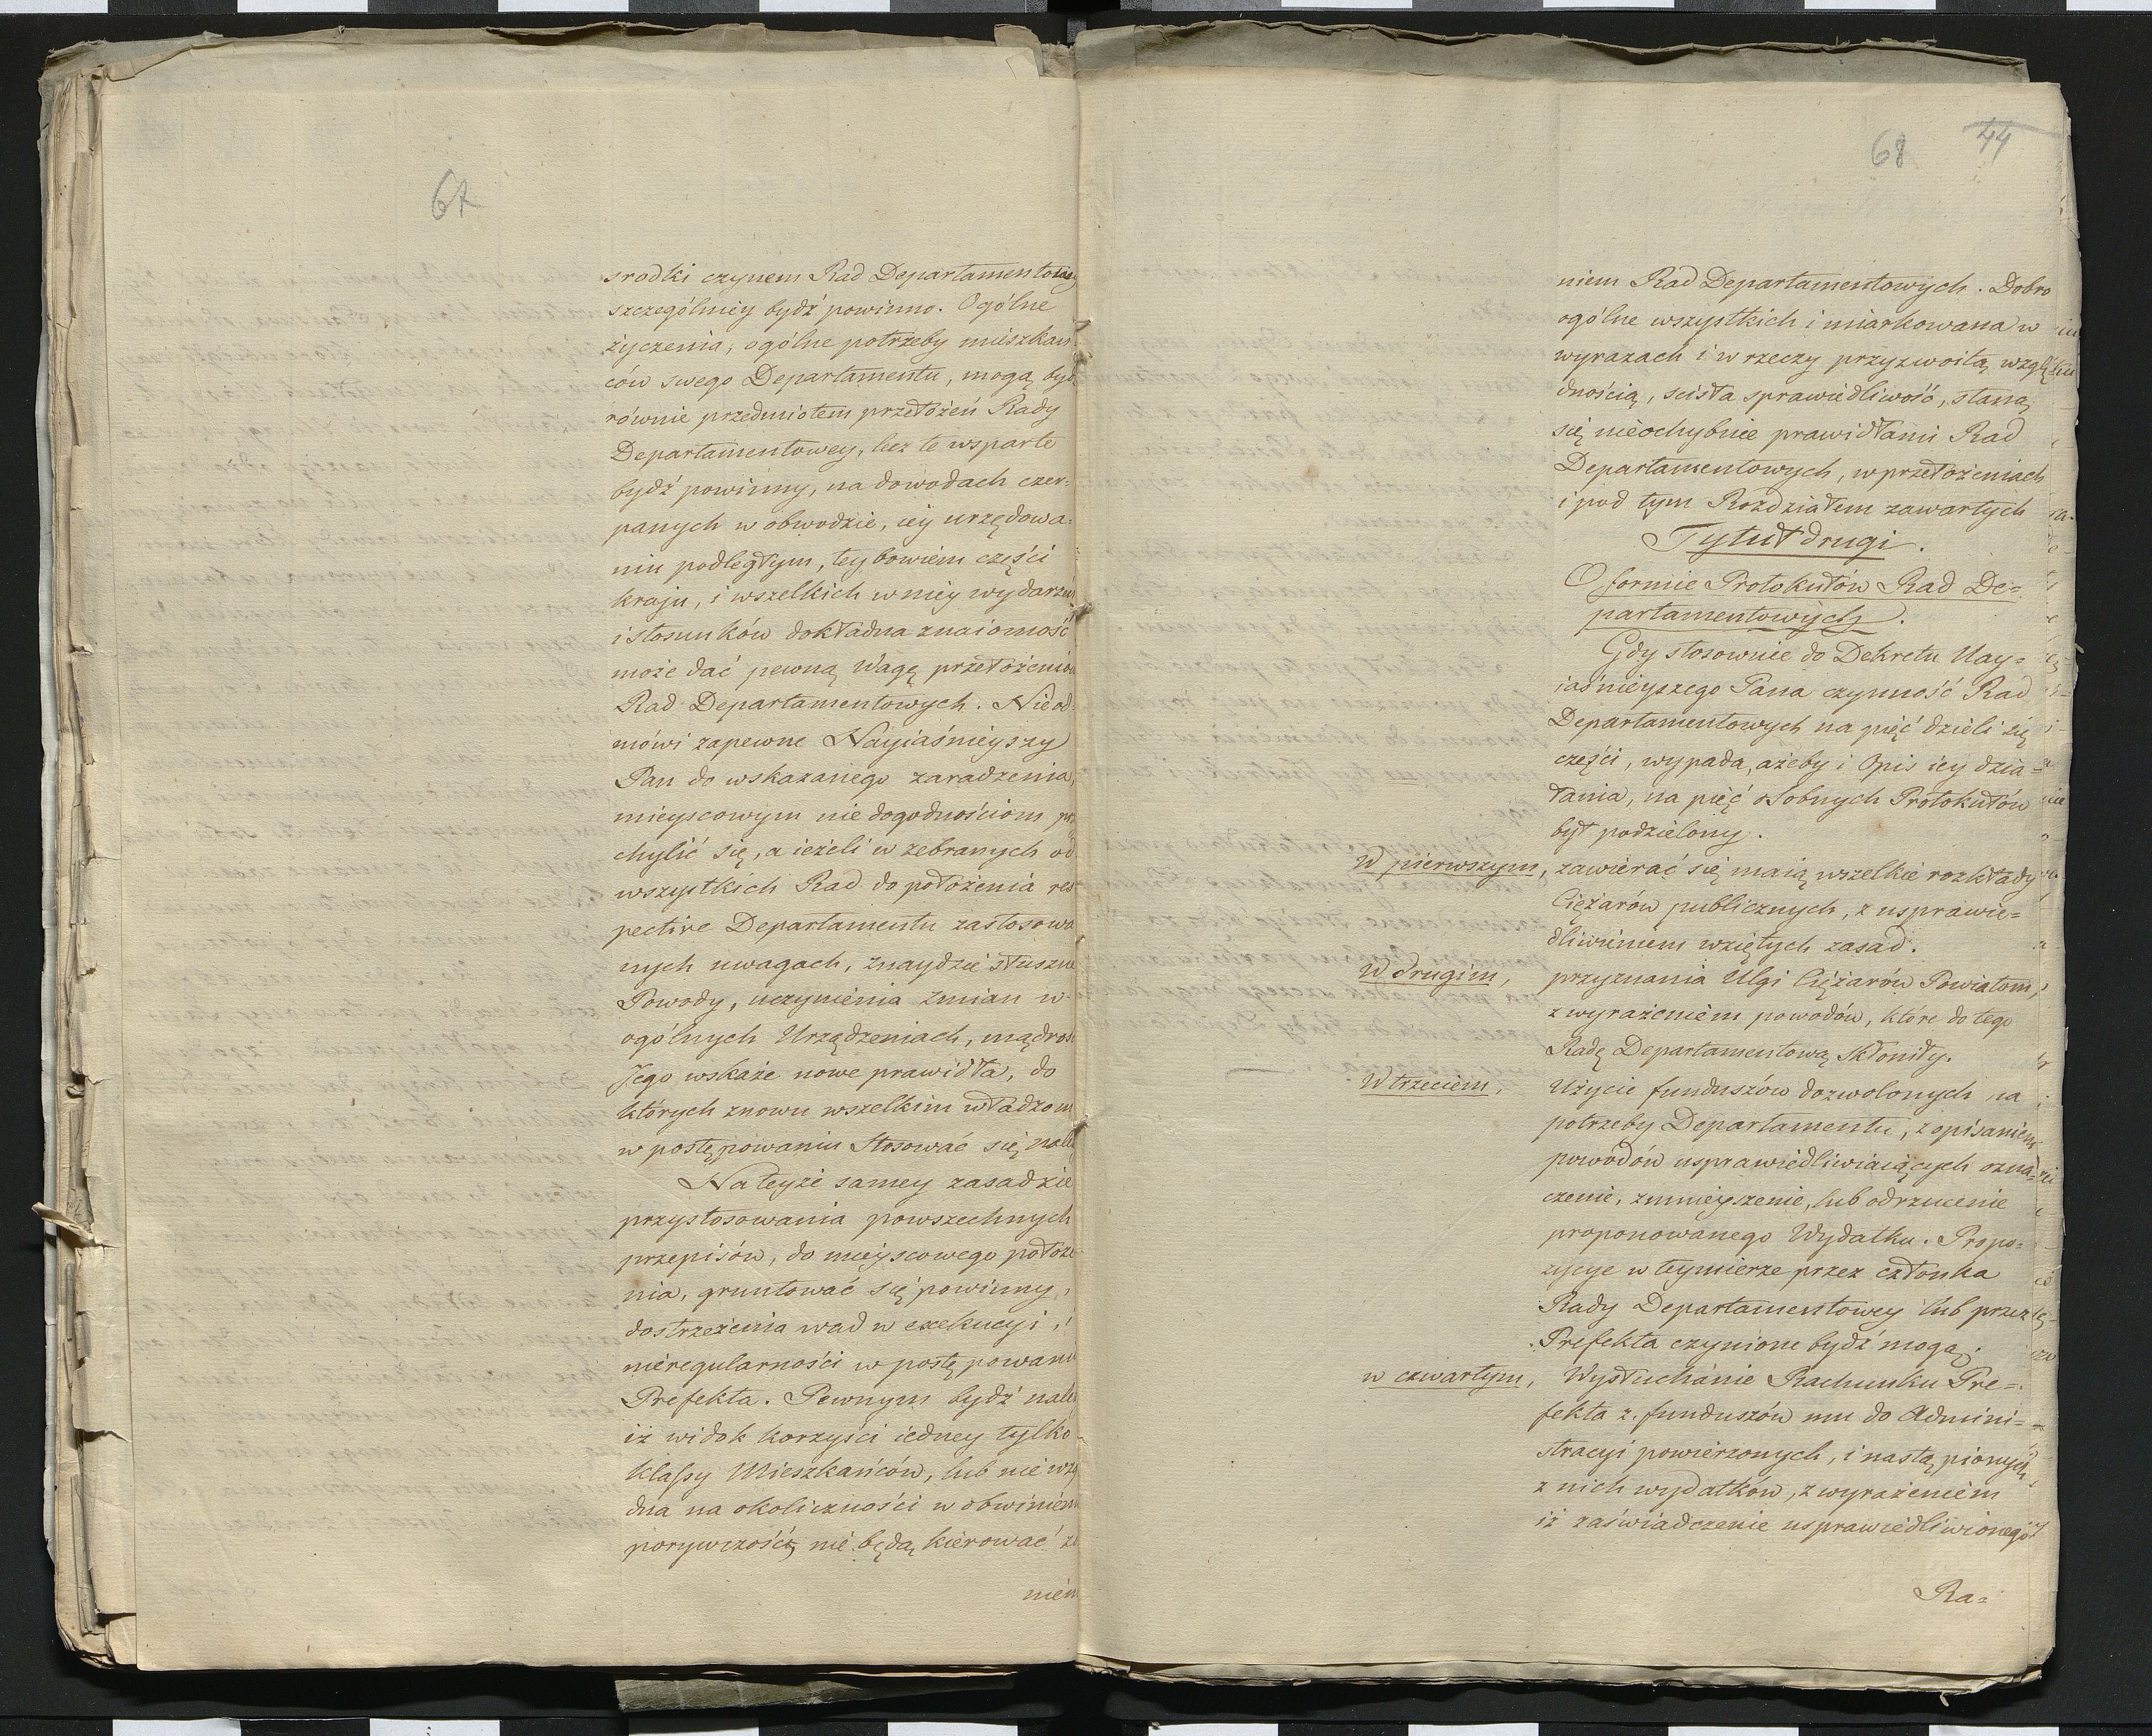 67
srodki czynem Rad Departamentowey
szczególniey bydź powinno. Ogólne
życzenia, ogólne potrzeby mieszkań
ców swego Departamentu, mogą bydź
równie przedmiotem przełożeń Rady
Departamentowey, lecz te wsparte
bydź powinny, na dowodach czer=
panych w obwodzie, iey urzędowa=
niu podległym, tey bowiem części
kraju, i wszelkich w niey wydarzeń
i stosunków dokładna znaiomość
może dać pewną Wagę przełożeniom
Rad Departamentowych. Nie od=
mówi zapewne Nayiaśnieyszy
Pan do wskazanego zaradzenia,
mieyscowym niedogodnościom prz
chylić się, a ieżeli w zebranych od
wszystkich Rad do położenia res
pective Departamentu zastosowa
nych uwagach, znaydzie słuszne
Powody, uczynienia zmian w
ogólnych Urządzeniach, mądrość
Jego wskaże nowe prawidła, do
których znowu wszelkim władzom
w postępowaniu Stosować się należy
Na teyże samey zasadzie
przystosowania powszechnych
przepisów, do mieyscowego położe
nia, gruntować się powinny,
dostrzeżenia wad w exekucyi, i
nieregularności w postępowaniu
Prefekta. Pewnym bydź należy
iż widok korzyści iedney tylko
klassy Mieszkańców, lub nie wzg
dna na okoliczności w obwinieniu
porywczość, nie będą kierować zd
niem
68 44
niem Rad Departamentowych. Dobro
ogólne wszystkich i miarkowana w
wyrazach i w rzeczy przyzwoitą wzglę
dnością, ścisła sprawiedliwość, staną
się nieochybnie prawidłami Rad
Departamentowych, w przełożeniach
i pod tym Rozdziałem zawartych
Tytuł drugi.
O formie Protokułów Rad De=
partamentowych.
Gdy stosownie do Dekretu Nay=
iaśnieyszego Pana czynność Rad
Departamentowych na pięć dzieli się
części, wypada, ażeby i Opis iey dzia=
łania, na pięć osobnych Protokułów
był podzielony.
W pierwszym, zawierać się maią wszelkie rozkłady
Ciężarów publicznych, z usprawie=
dliwieniem wziętych zasad.
W drugim, przyznania Ulgi Ciężarów Powiatom,
z wyrażeniem powodów, które do tego
Radę Departamentową Skłoniły.
W trzeciem, Użycie funduszów dozwolonych na
potrzeby Departamentu, z opisaniem
powodów usprawiedliwiaiących ozna=
czenie, zmnieyszenie, lub odrzucenie
proponowanego Wydatku. Propo=
zycye w teymierze przez członka
Rady Departamentowey lub przez
Prefekta czynione bydź mogą.
w czwartym, Wysłuchanie Rachunku Pre=
fekta z funduszów mu do Admini=
stracyi powierzonych, i nastąpionych
z nich wydatków, z wyrażeniem
iż zaświadczenie usprawiedliwionego
Ra=